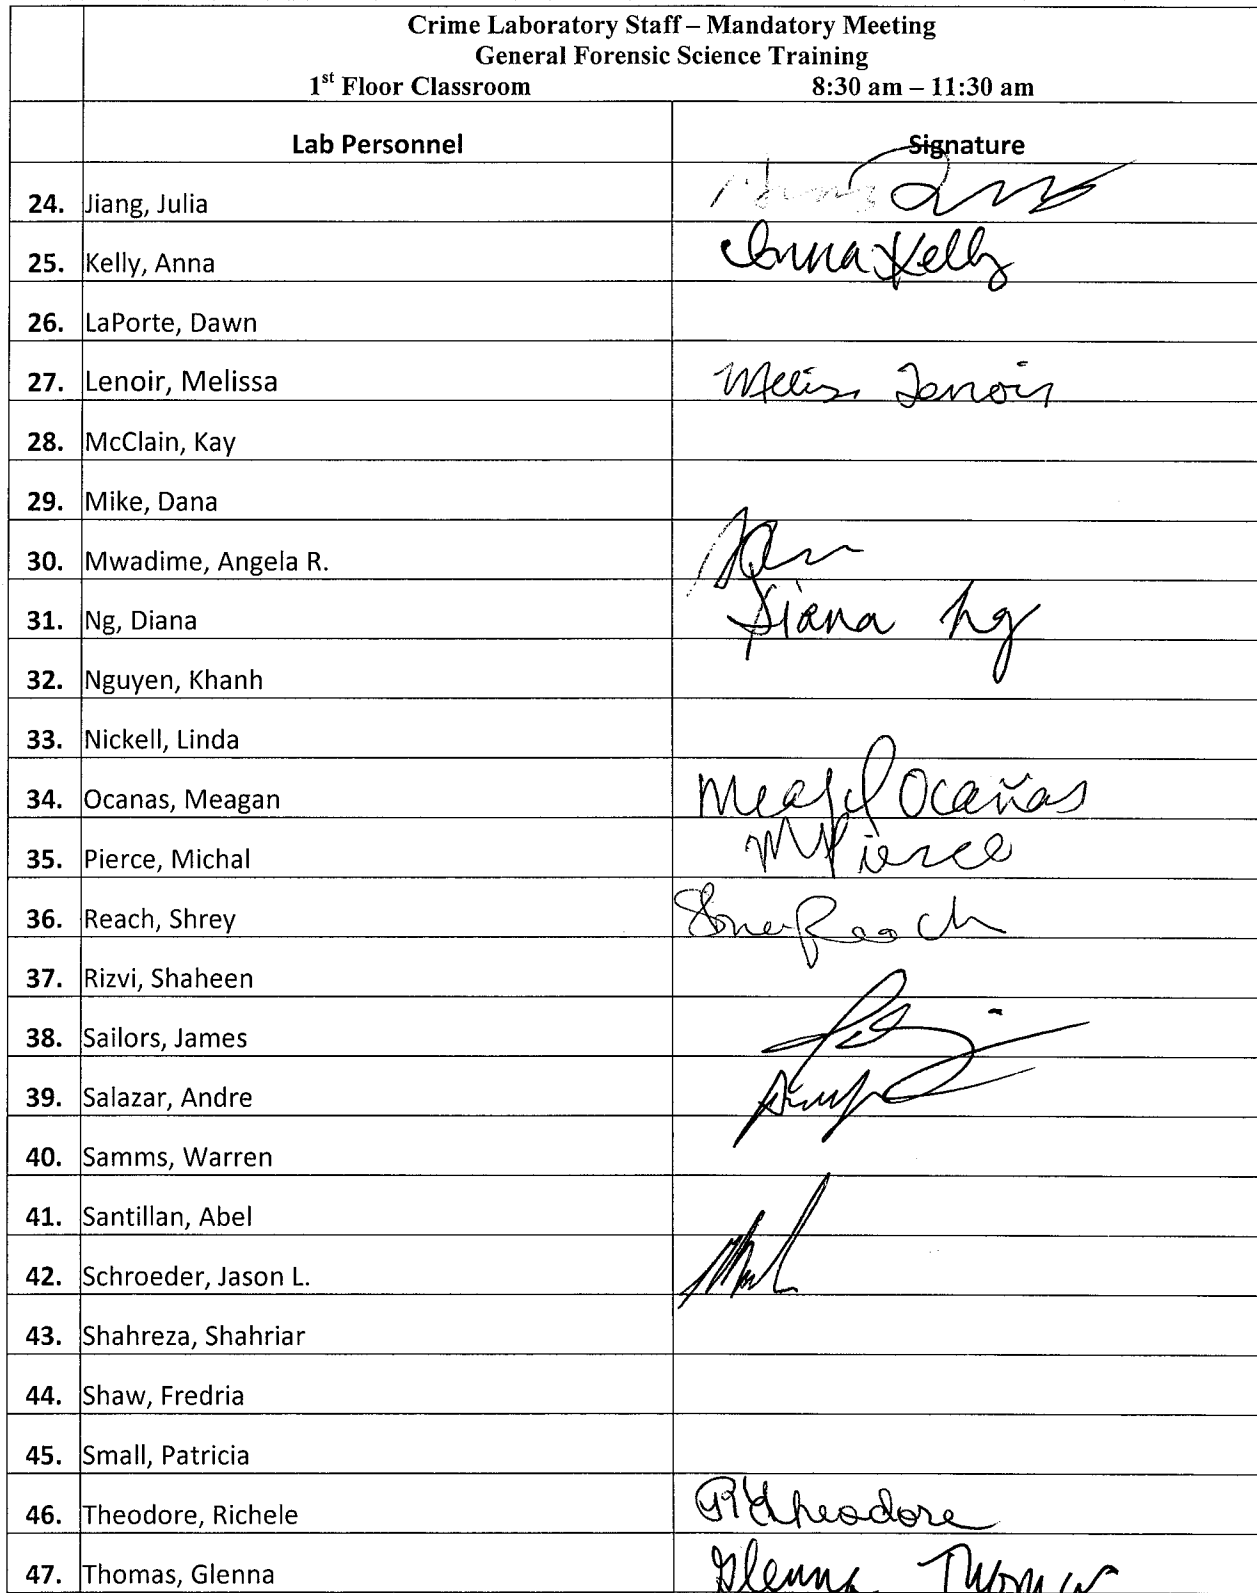 Crime Laboratory Staff – Mandatory Meeting
General Forensic Science Training
1st Floor Classroom 8:30 am – 11:30 am
Lab Personnel Signature
24. Jiang, Julia
25. Kelly, Anna Anna Kelly
26. LaPorte, Dawn
27. Lenoir, Melissa Meliss Lenoir
28. McClain, Kay
29. Mike, Dana
30. Mwadime, Angela R.
31. Ng, Diana Diana Ng
32. Nguyen, Khanh
33. Nickell, Linda
34. Ocanas, Meagan Meagan Ocañas
35. Pierce, Michal MPierce
36. Reach, Shrey Reach
37. Rizvi, Shaheen
38. Sailors, James
39. Salazar, Andre
40. Samms, Warren
41. Santillan, Abel
42. Schroeder, Jason L.
43. Shahreza, Shahriar
44. Shaw, Fredria
45. Small, Patricia
46. Theodore, Richele Theodore
47. Thomas, Glenna Glenna Thomas